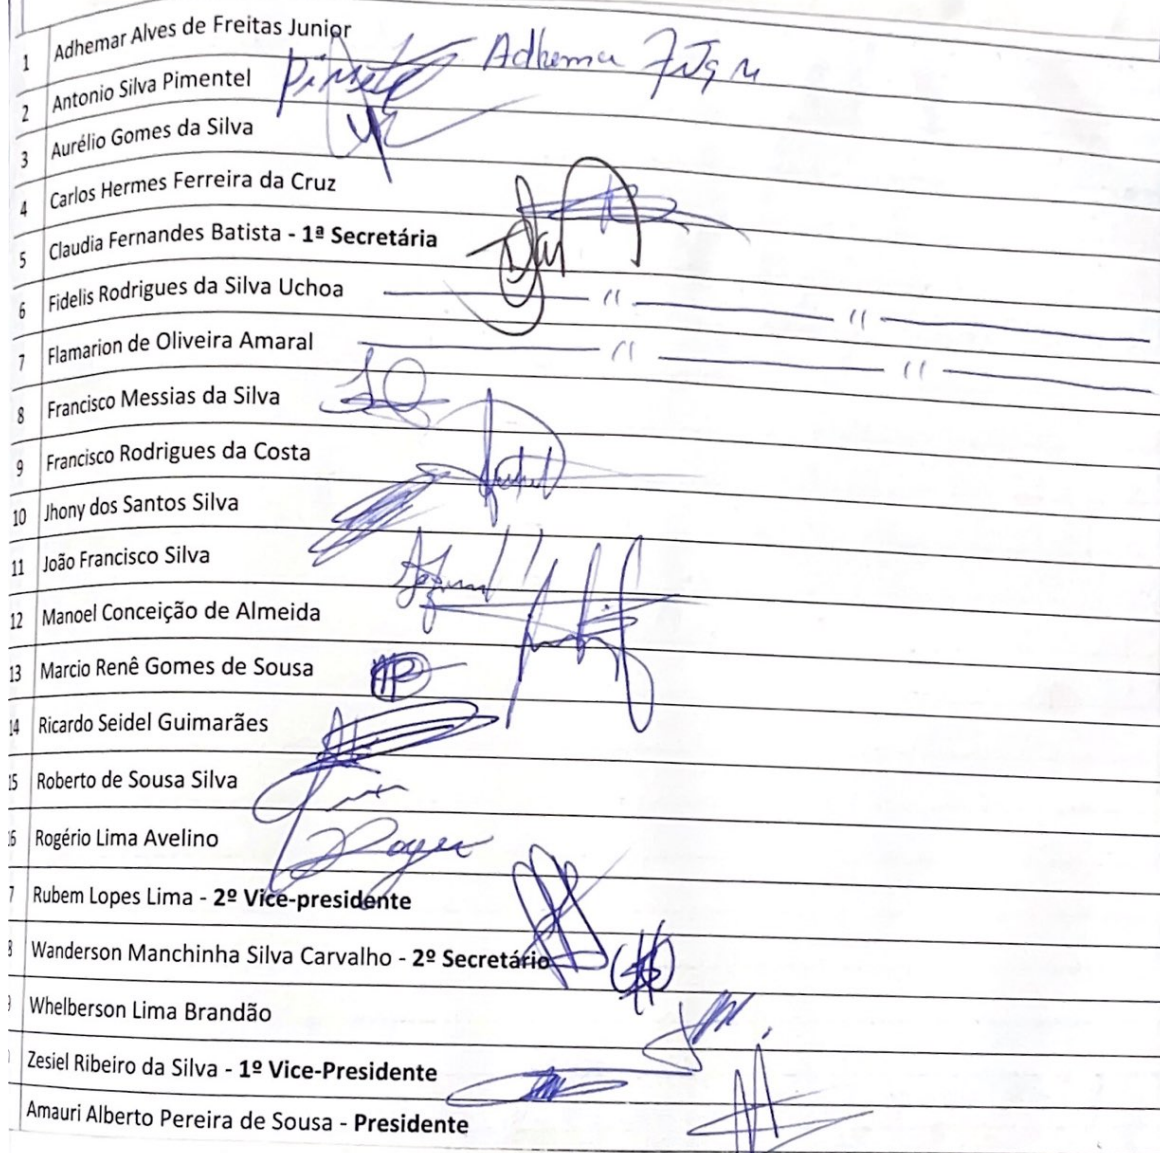 1 Adhemar Alves de Freitas Junior Adhema
2 Antonio Silva Pimentel
3 Aurélio Gomes da Silva
4 Carlos Hermes Ferreira da Cruz
5 Claudia Fernandes Batista - 1ª Secretária
6 Fidelis Rodrigues da Silva Uchoa
7 Flamarion de Oliveira Amaral
8 Francisco Messias da Silva
9 Francisco Rodrigues da Costa
10 Jhony dos Santos Silva
11 João Francisco Silva
12 Manoel Conceição de Almeida
13 Marcio Renê Gomes de Sousa
14 Ricardo Seidel Guimarães
15 Roberto de Sousa Silva
6 Rogério Lima Avelino
7 Rubem Lopes Lima - 2º Vice-presidente
8 Wanderson Manchinha Silva Carvalho - 2º Secretário
9 Whelberson Lima Brandão
Zesiel Ribeiro da Silva - 1º Vice-Presidente
Amauri Alberto Pereira de Sousa - Presidente